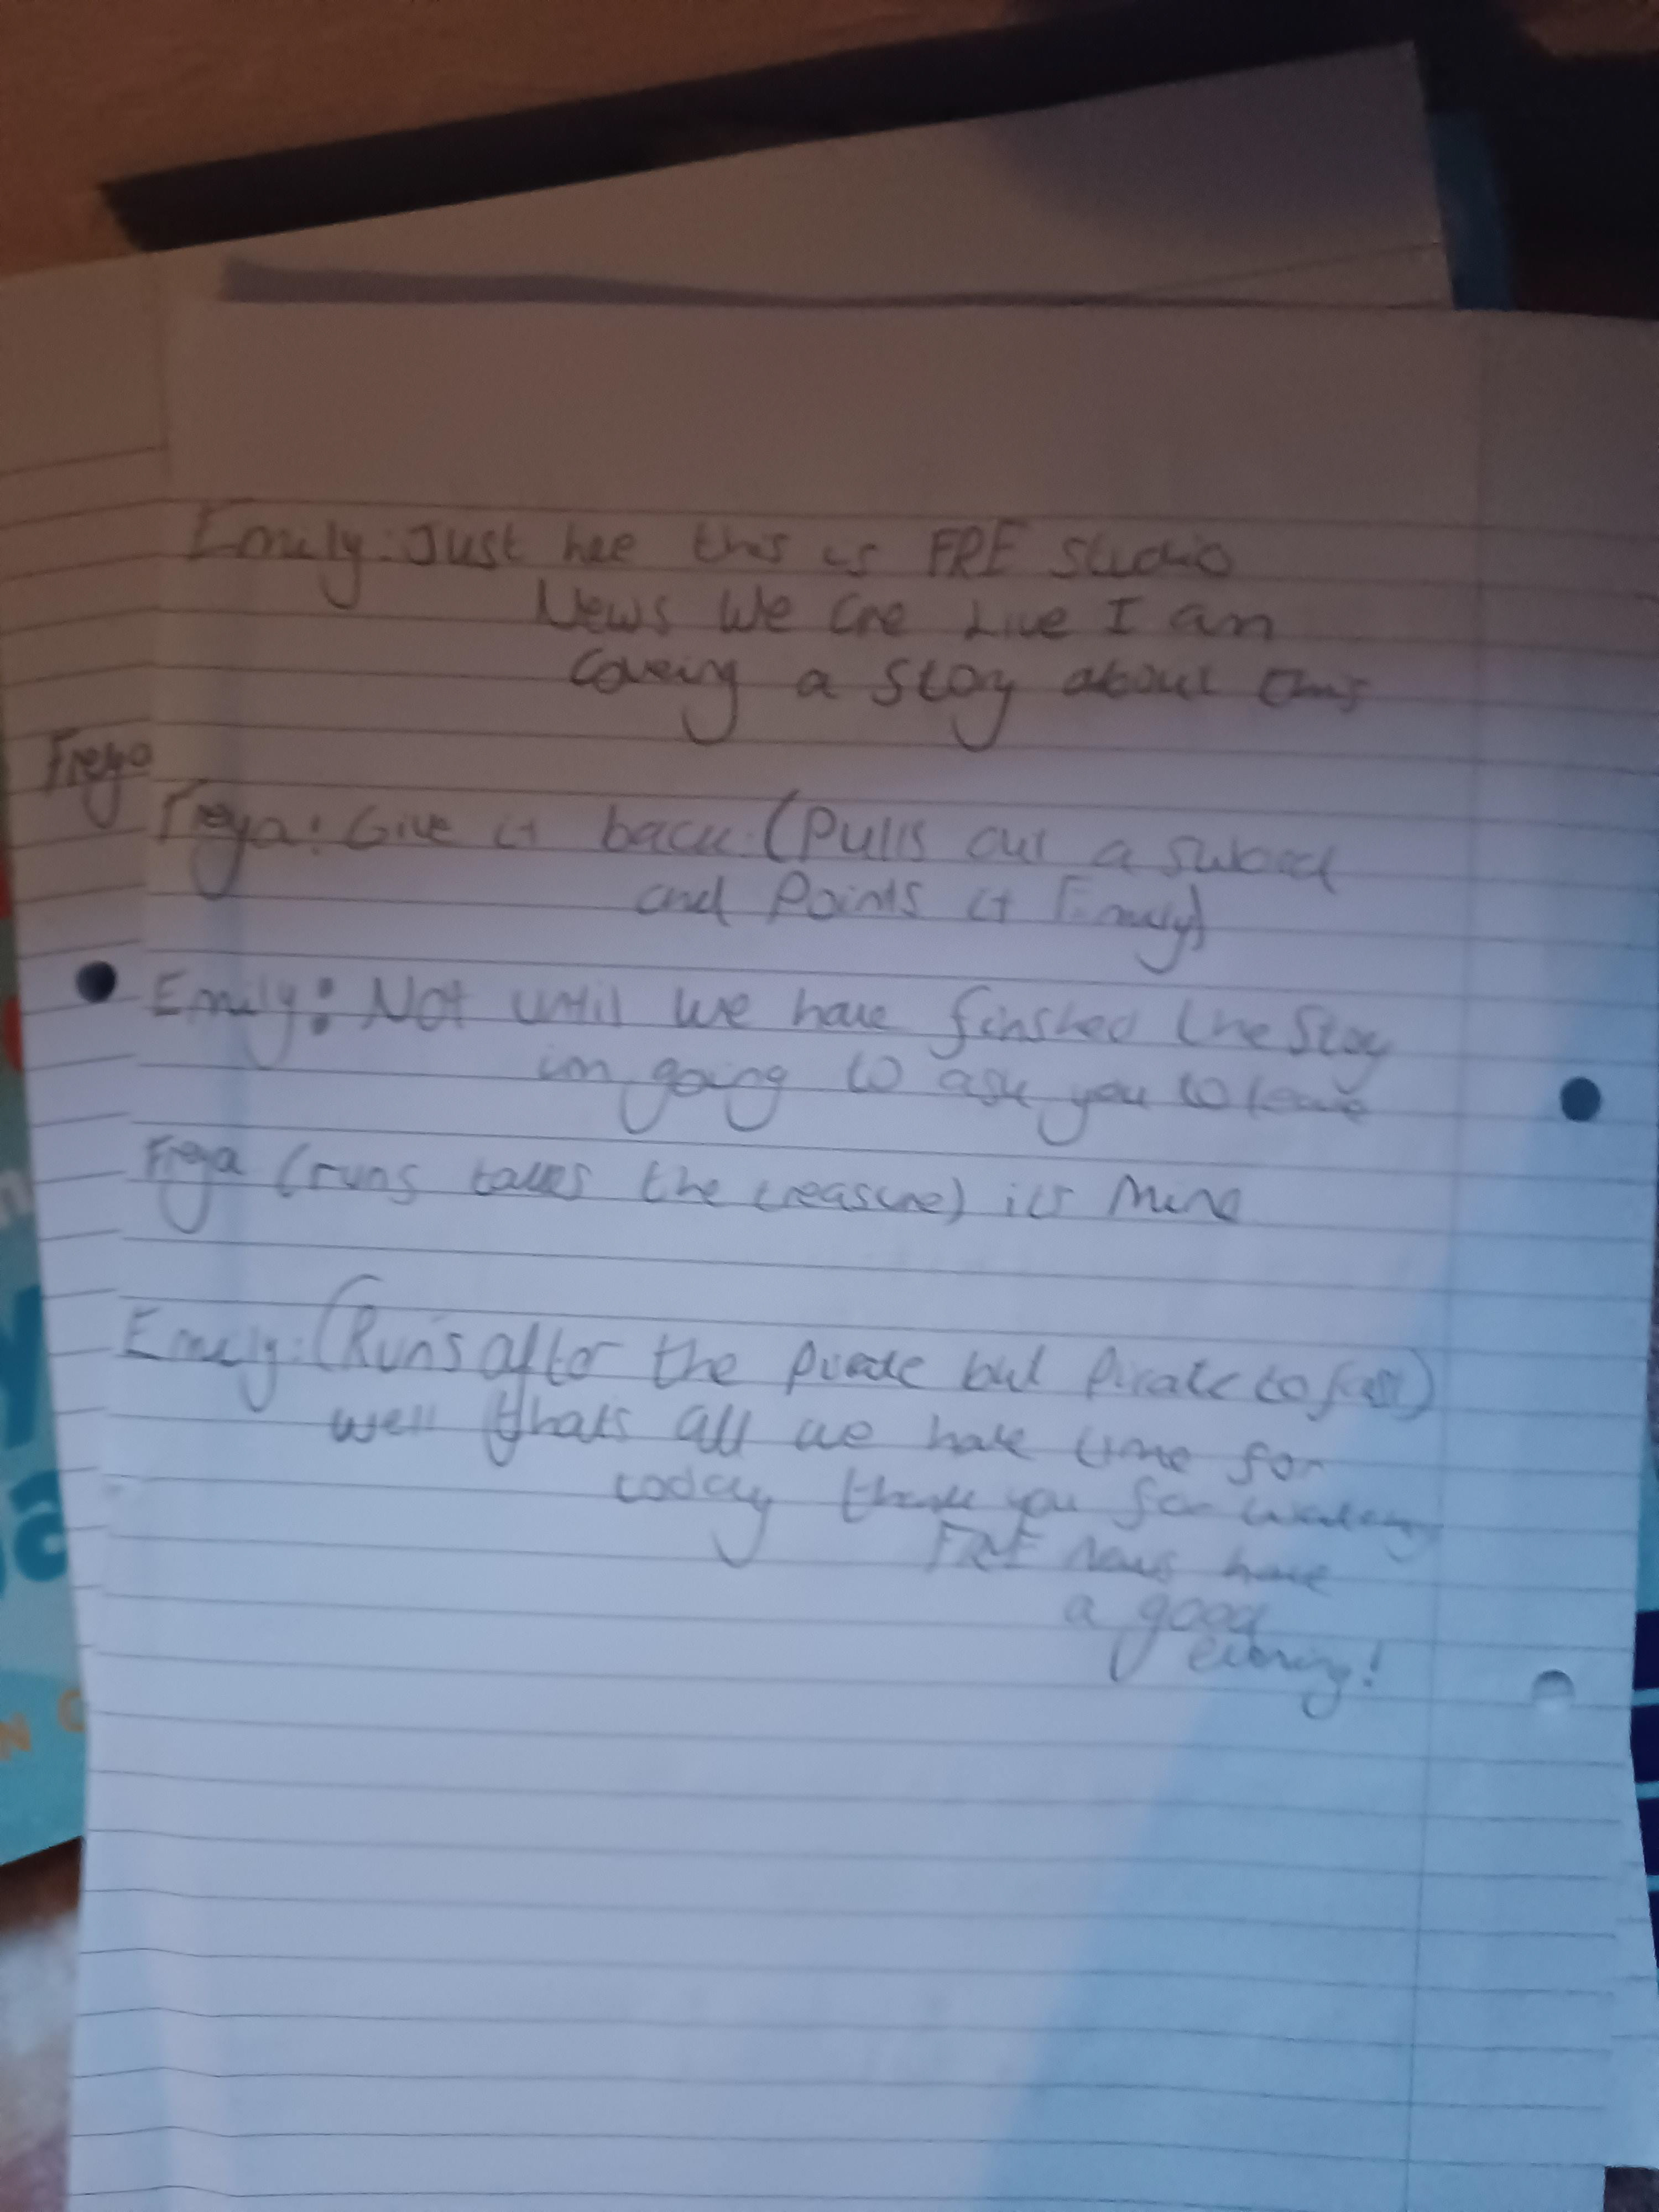 Emily: Just hee this is FRE Studio
News We are Live I am
Coveing a Stoy about this
Freya
Freya: Give it back (Pulls out a sword
and Points it Emily)
Emily: Not until we have finshed the Stoy
im going to ask you to leave
Freya (runs takes the treasure) its Mine
Emily: (Runs after the pirate but Pirate to fast)
well thats all we have time for
today thank you for
FRE News have
a good
evening!